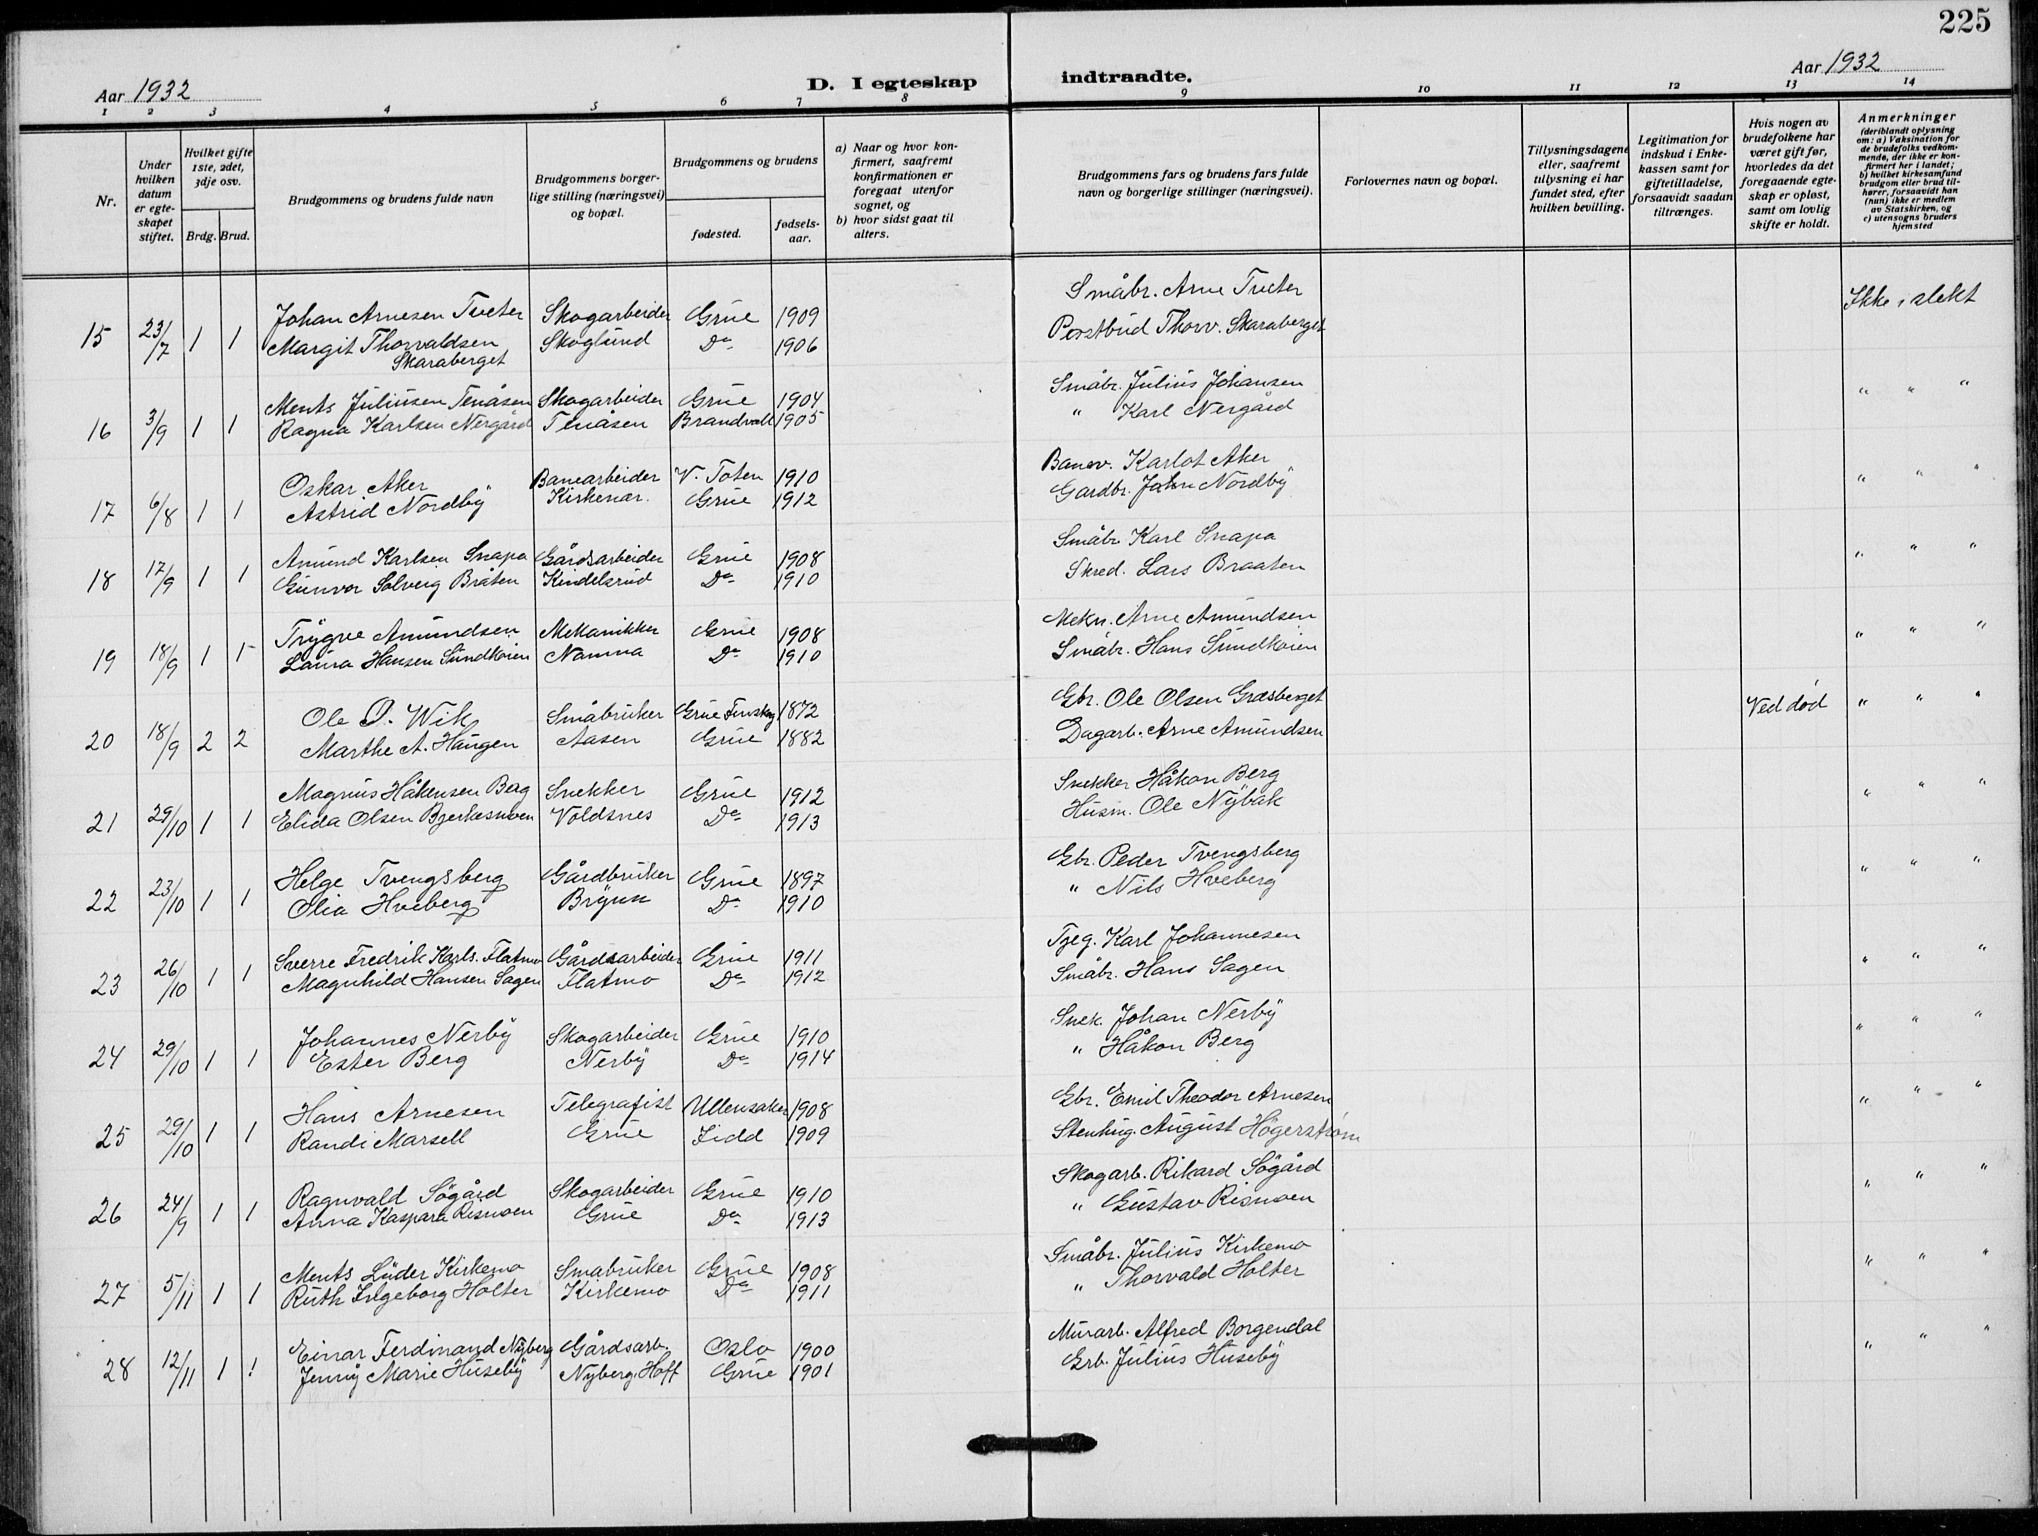 225
Aar 1932
D. I egteskap
indtraadte.
Aar 1932
1 2 3 4 5 6 7 8 9 10 11 12 13 14
Nr.
Under hvilken datum er egteskapet stiftet.
Hvilket gifte 1ste, 2det, 3dje osv.
Brdg. Brud.
Brudgommens og brudens fulde navn
Brudgommens borgerlige stilling (næringsvei) og bopæl.
Brudgommens og brudens
fødested.
fødselsaar.
a) Naar og hvor konfirmert, saafremt konfirmationen er foregaat utenfor sognet, og
b) hvor sidst gaat til alters.
Brudgommens fars og brudens fars fulde navn og borgerlige stillinger (næringsvei).
Forlovernes navn og bopæl.
Tillysningsdagene eller, saafremt tillysning ei har fundet sted, efter hvilken bevilling.
Legitimation for indskud i Enkekassen samt for giftetilladelse, forsaavidt saadan tiltrænges.
Hvis nogen av brudefolkene har været gift før, hvorledes da det foregaaende egteskap er opløst, samt om lovlig skifte er holdt.
Anmerkninger
(deriblandt oplysning om: a) Vaksination for de brudefolks vedkommende, der ikke er konfirmert her i landet; b) hvilket kirkesamfund brudgom eller brud tilhører, forsaavidt han (hun) ikke er medlem av Statskirken, og c) utensogns bruders hjemsted
15 23/7 1 1 Johan Arnesen Tveter Skogarbeider Grue 1909 Småbr. Arne Tveter Ikke i slekt
Margit Thorvaldsen Skaraberget Skoglund Do 1906 Postbud Thorv. Skaraberget
16 3/9 1 1 Ments Juliusen Tenåsen Skogarbeider Grue 1904 Småbr. Julius Johansen " " "
Ragna Karlsen Nergård Tenåsen Brandval 1905 " Karl Nergård
17 6/8 1 1 Oskar Aker Banearbeider V. Toten 1910 Banev. Karlot Aker " " "
Astrid Nordby Kirkenær. Grue 1912 Gardbr. John Nordby
18 17/9 1 1 Amund Karlsen Snapa Gårdsarbeider Grue 1908 Småbr Karl Snapa " " "
Gunvor Solveig Bråten Kindelsrud Do 1910 Skred. Lars Braaten
19 18/9 1 1 Trygve Amundsen Mekanikker Grue 1908 Mekn. Arne Amundsen " " "
Laura Hansen Sundkoien Namna Do 1910 Småbr. Hans Sundkoien
20 18/9 2 2 Ole P. Wik Småbruker Grue Finskog 1872 Gbr. Ole Olsen Græsberget Ved død " " "
Marthe A. Haugen Aasen Grue 1882 Dagarb. Arne Amundsen
21 29/10 1 1 Magnus Håkensen Berg Snekker Grue 1912 Snekker Håkon Berg " " "
Elida Olsen Bjerkesmoen Voldsnes Do 1913 Husm. Ole Nybak
22 23/10 1 1 Helge Tvengsberg Gårdbruker Grue 1897 Gbr. Peder Tvengsberg " " "
Olia Hveberg Do 1910 " Nils Hveberg
23 26/10 1 1 Sverre Fredrik Karls. Flatmo Gårdsarbeider Grue 1911 Karl Johannesen " " "
Magnhild Hansen Sagen Flatmo Do 1912 Småbr. Hans Sagen
24 29/10 1 1 Johannes Nerby Skogarbeider Grue 1910 Snek. Johan Nerby " " "
Ester Berg Nerby Do 1914 " Håkon Berg
25 29/10 1 1 Hans Arnesen Telegrafist Ullensaker 1908 Gbr. Emil Theodor Arnesen " " "
Randi Marsell Grue 1909 Stenhug. August Högerström
26 24/9 1 1 Ragnvald Søgård Skogarbeider Grue 1910 Skogarb. Rikard Søgård " " "
Anna Kaspara Rismoen Grue Do 1913 " Gustav Rismoen
27 5/11 1 1 Ments Lüder Kirkemo Småbruker Grue 1908 Småbr. Julius Kirkemo " " "
Ruth Ingeborg Holter Kirkemo Do 1911 " Thorvald Holter
28 12/11 1 1 Einar Ferdinand Nyberg Gårdsarb. Oslo 1900 Murarb. Alfred Borgendal " " "
Jenny Marie Huseby Nyberg. Hoff Grue 1901 Julius Huseby